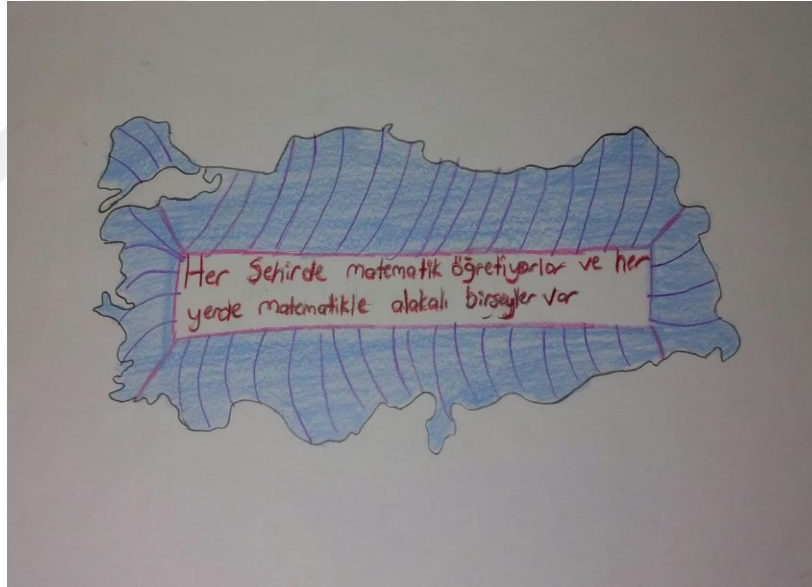 Her Şehirde matematik öğretiyorlar ve her
yerde matematikle alakalı birşeyler var